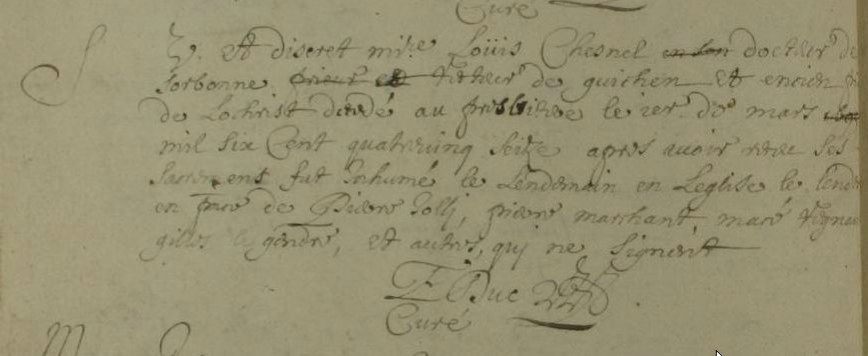 Curé
V. et discret mi.re Loüis Chesnel en son docteur de
Sorbonne prieur et recteur de guichen et encien
de Lochrist décédé au presbitere le 1er. de mars
mil six Cent quatrevinq seize apres avoir receu ses
Sacremens fut Inhumé le Lendemain en Leglise le lende
en pnce de Pierre Jolli, pierre marchant, maré vigneu
gilles le gendre, et autres, qui ne signent
F Duc
Curé